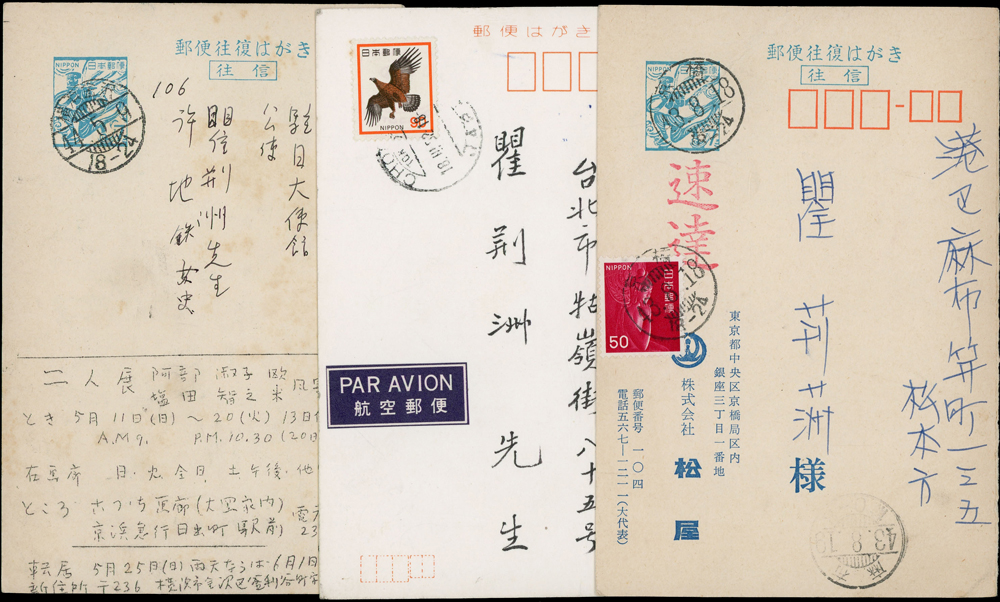 郵便往復はがき
往信
NIPPON 日本郵便
8-24
106
駐日大使館
公使
閏信荆洲先生
許地銖女史
二人展 阿部淑子 欧風
塩田智之 米
とき 5月11日(日)〜20(火) 13日
A.M 9. P.M. 10.30 (20日
在画廊 日・火全日 土午後・他
ところ さつち画廊(
京浜急行日出町駅前) 23
転居 5月25日(日)雨天ならば 6月1日
新住所 〒236 横浜市金沢区釜利谷町
郵便はがき
日本郵便
NIPPON
90
台北市牯嶺街八十五号
瞿荆洲先生
PAR AVION
航空郵便
郵便往復はがき
往信
NIPPON 日本郵便
43.8.18
18-24
港区麻布笄町一三五
松本方
瞿荊洲様
速達
NIPPON
日本郵便
50
43.8.18
18-24
東京都中央区京橋局区内
銀座三丁目一番地
株式会社 松屋
郵便番号 一〇四
電話五六七—一二一一(大代表)
43.8.19